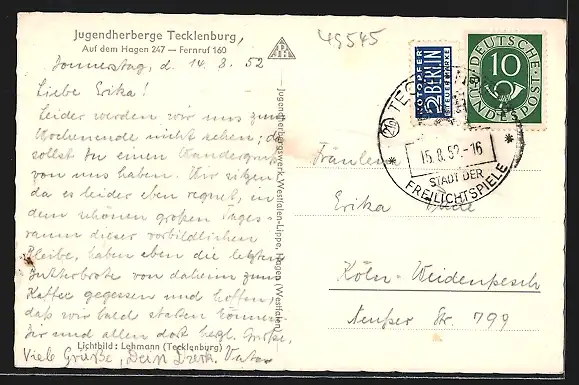 Jugendherberge Tecklenburg,
Auf dem Hagen 247 — Fernruf 160
Donnerstag, d. 14. 8. 52
Liebe Erika!
Leider werden wir uns zum
Wochenende nicht sehen; da
sollst Du einen Wandergruß
von uns haben. Wir sitzen,
da es leider eben regnet, in
dem schönen großen Tages-
raum dieser vorbildlichen
Bleibe, haben eben die letzten
Butterbrote von daheim zum
Kaffee gegessen und hoffen,
daß wir bald starten können.
Dir und allen dort herzl. Grüße,
Viele Grüße, Dein
Lichtbild: Lehmann (Tecklenburg)
Jugendherbergswerk Westfalen-Lippe, Hagen (Westfalen)
49545
NOTOPFER
2 BERLIN
STEUERMARKE
DEUTSCHE
BUNDESPOST
10
15.8.52-16
STADT DER
FREILICHTSPIELE
Fräulein
Erika
Köln-Weidenpesch
Neußer Str. 799